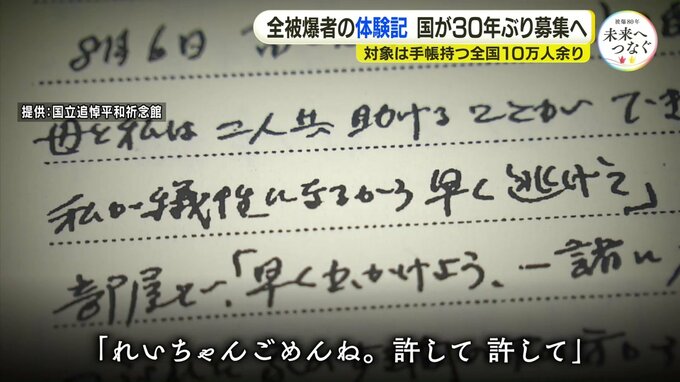 全被爆者の体験記 国が30年ぶり募集へ
対象は手帳持つ全国10万人余り
被爆80年
未来へ
つなぐ
提供:国立追悼平和祈念館
8月6日
母と私は二人共助けることができま
私が犠牲になるから早く逃げて」
部屋で、「早く出かけよう、一諸に
「れいちゃんごめんね。許して 許して」